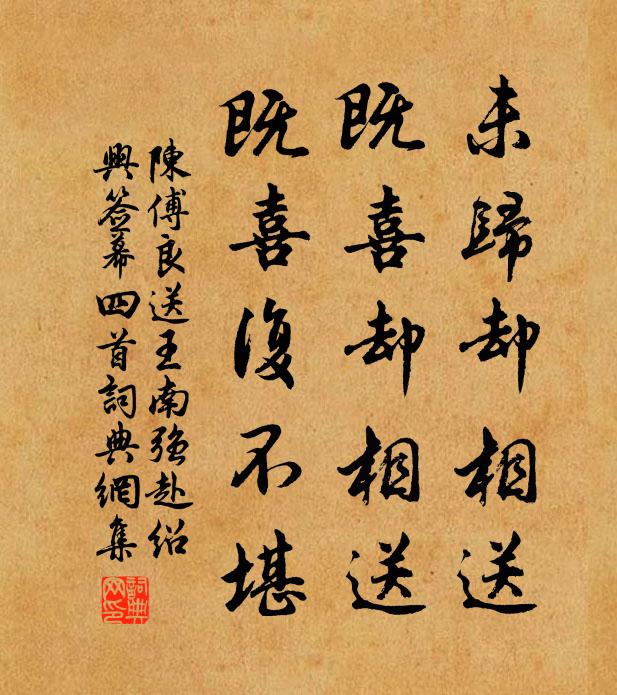 未歸却相送
既喜却相送
既喜復不堪
陳傅良送王南強赴紹
興簽幕四首詞典網集
詞典
网印